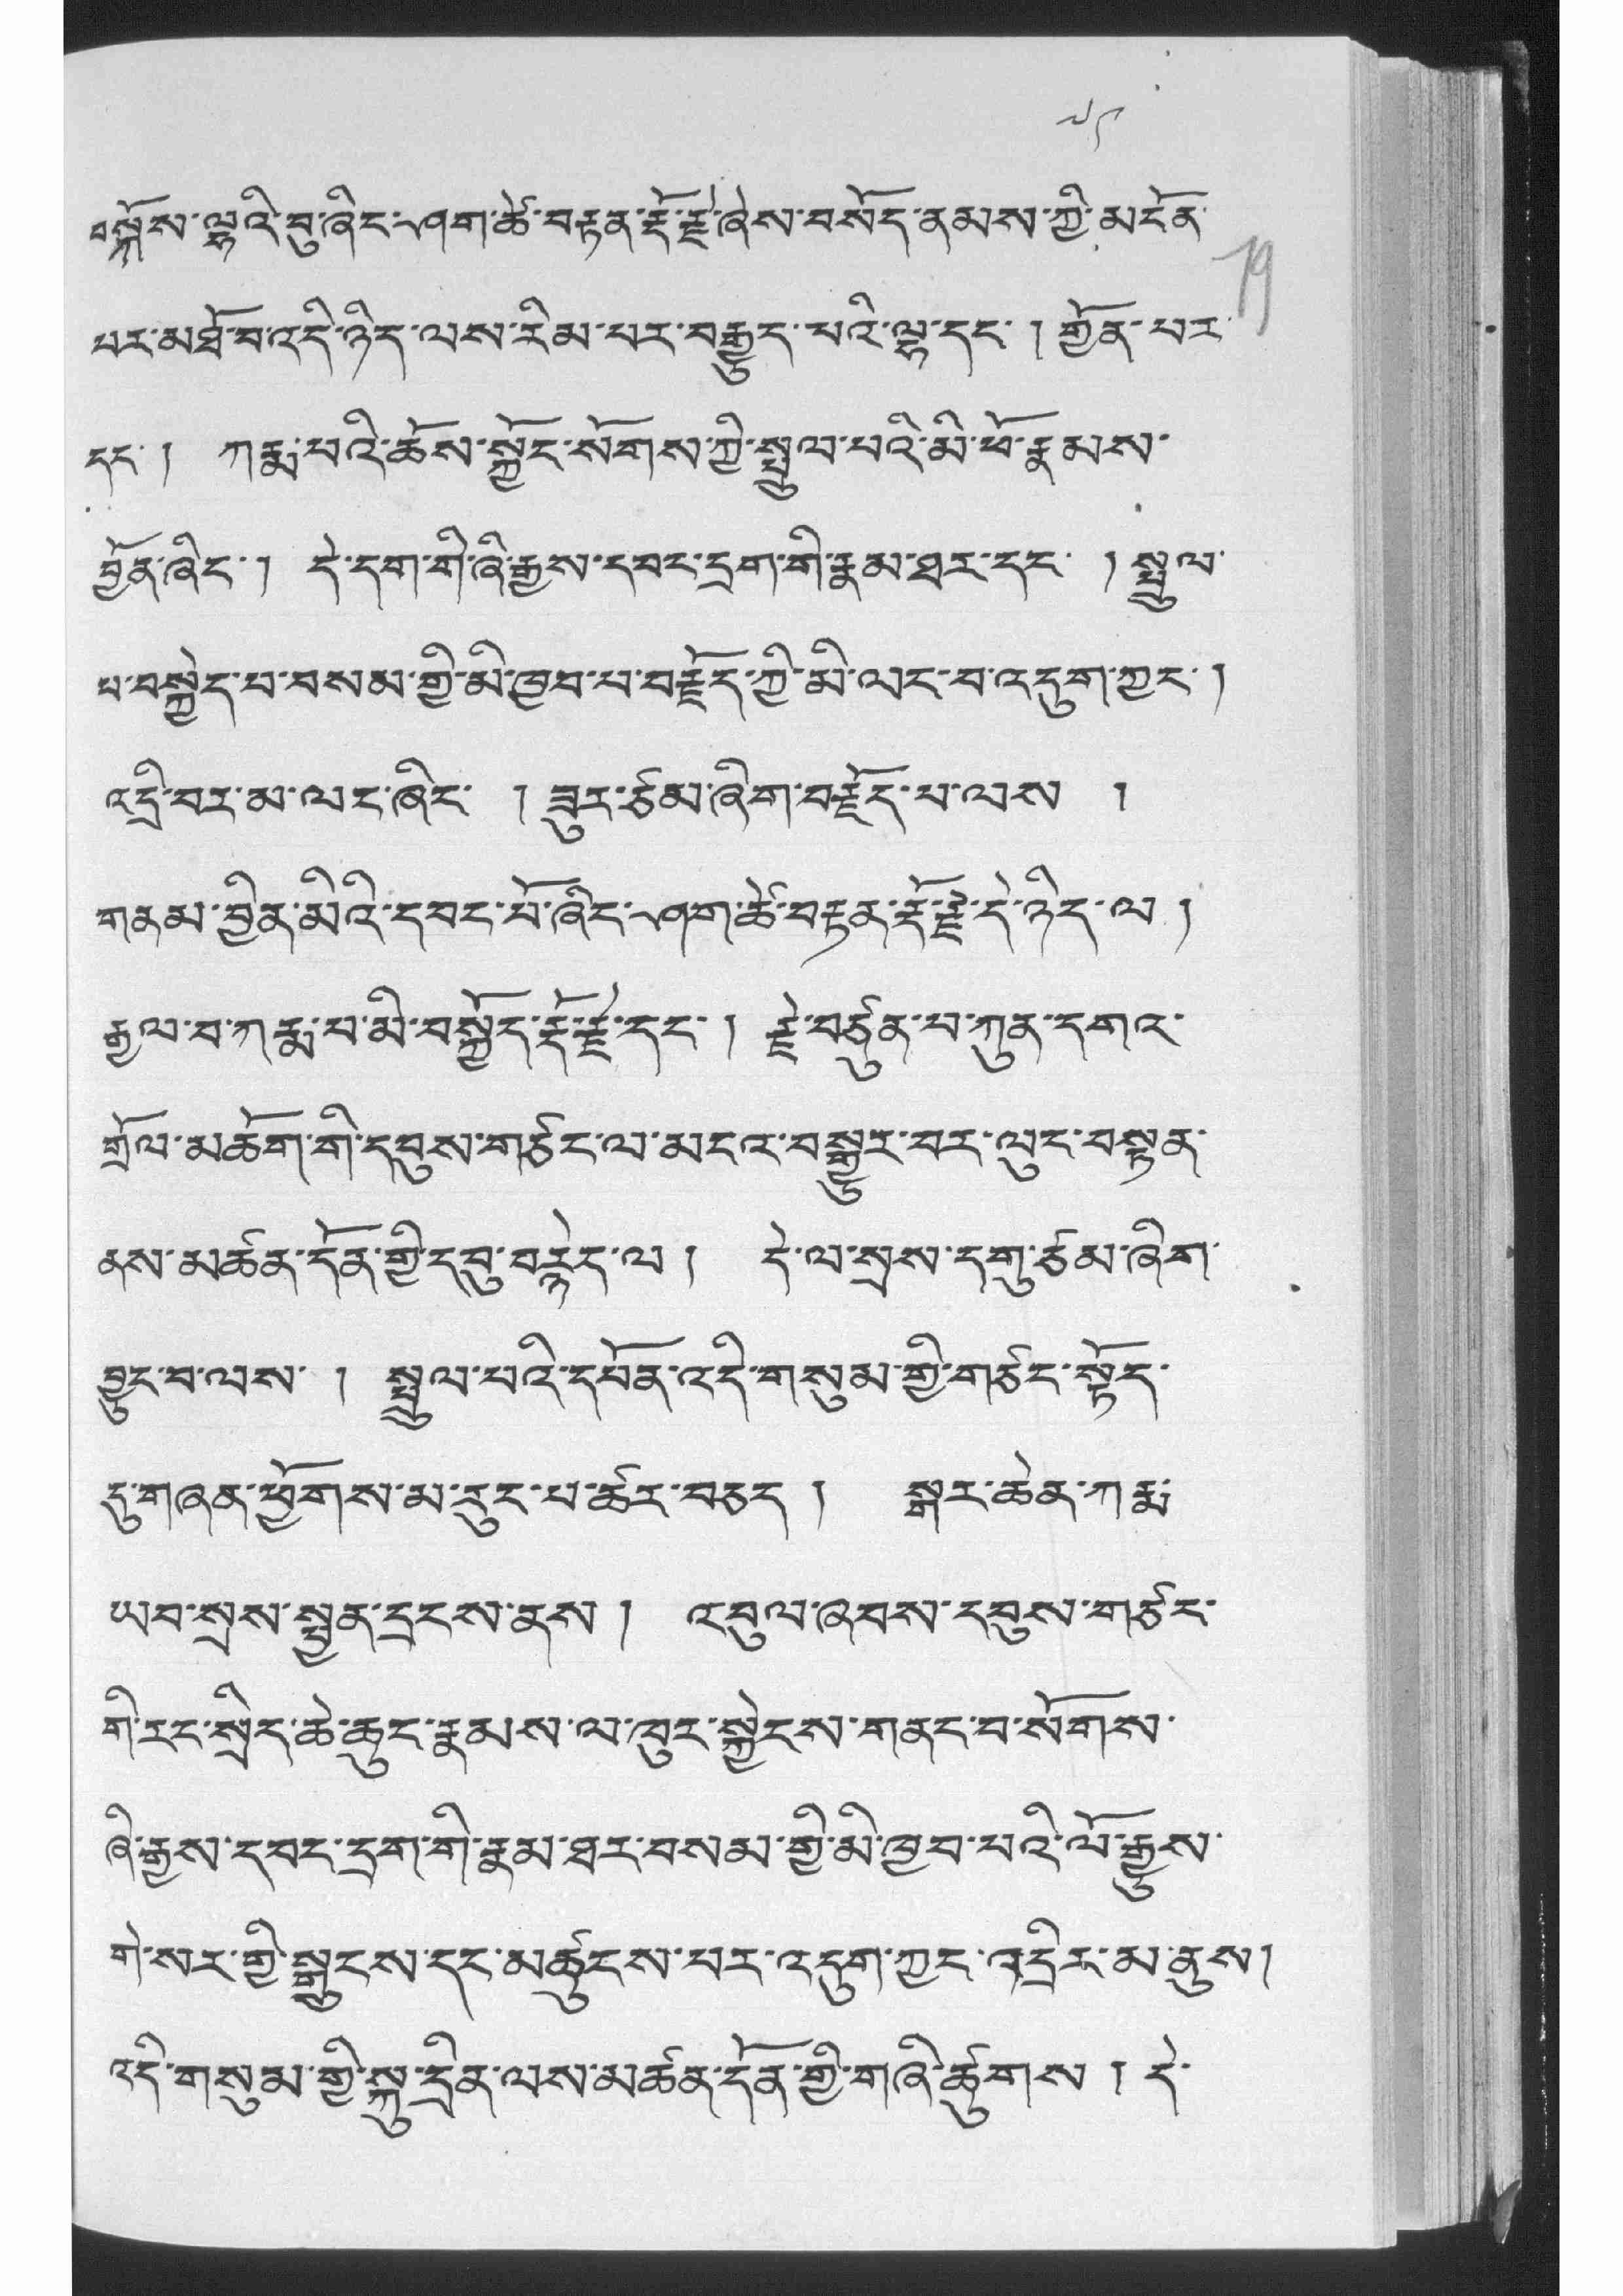 ༧༩
བསྐོས་ལྷའི་བུ་ཞིང་ཤག་ཚེ་བརྟན་རྡོ་རྗེ་ཞེས་བསོད་ནམས་ཀྱི་མངོན་
19
པར་མཐོ་བ་འདི་ཉིད་ལས་རིམ་པར་བརྒྱུད་པའི་ལྷ་དང་། ཀྱོན་པར་
དང་། ཀརྨ་པའི་ཆོས་སྐྱོང་སོགས་ཀྱི་སྤྲུལ་པའི་མི་ཕོ་རྣམས་
བྱོན་ཞིང་། དེ་དག་གི་ཞི་རྒྱས་དབང་དྲག་གི་རྣམ་ཐར་དང་ །སྤྲུལ་
པ་བསྐྱེད་པ་བསམ་གྱི་མི་ཁྱབ་པ་བརྗོད་ཀྱི་མི་ལང་བ་འདུག་ཀྱང་།
འདྲི་བར་མ་ལང་ཞིང་ །ཟུར་ཙམ་ཞིག་བརྗོད་པ་ལས །
གནམ་བྱིན་མིའི་དབང་པོ་ཞིང་ཤག་ཚེ་བརྟན་རྡོ་རྗེ་དེ་ཉིད་ལ།
རྒྱལ་བ་ཀརྨ་པ་མི་བསྐྱོད་རྡོ་རྗེ་དང་། རྗེ་བཙུན་པ་ཀུན་དགའ་
གྲོལ་མཆོག་གི་དབུས་གཙང་ལ་མངའ་བསྒྱུར་བར་ལུང་བསྟན་
ནས་མཚན་དོན་གྱི་དབུ་བརྙེད་ལ། དེ་ལ་སྲས་དགུ་ཙམ་ཞིག་
བྱུང་བ་ལས་ །སྤྲུལ་པའི་དཔོན་འདི་གསུམ་གྱི་གཙང་སྟོད་
དུ་གཞན་ཕྱོགས་མ་རུང་པ་ཚར་བཅད། སྒར་ཆེན་ཀརྨ་
ཡབ་སྲས་སྤྱན་དྲངས་ནས། འབུལ་ཞབས་དབུས་གཙང་
གི་རང་སྲིད་ཆེ་ཆུང་རྣམས་ལ་ཁུར་སྐྱེངས་གནང་བ་སོགས་
ཞི་རྒྱས་དབང་དྲག་གི་རྣམ་ཐར་བསམ་གྱི་མི་ཁྱབ་པའི་ལོ་རྒྱུས་
གེ་སར་གྱི་སྒྲུངས་དང་མཚུངས་པར་འདུག་ཀྱང་འདྲིར་མ་ནུས།
འདི་གསུམ་གྱི་སྐུ་དྲིན་ལས་མཚན་དོན་གྱི་གཞི་ཚུགས །དེ་